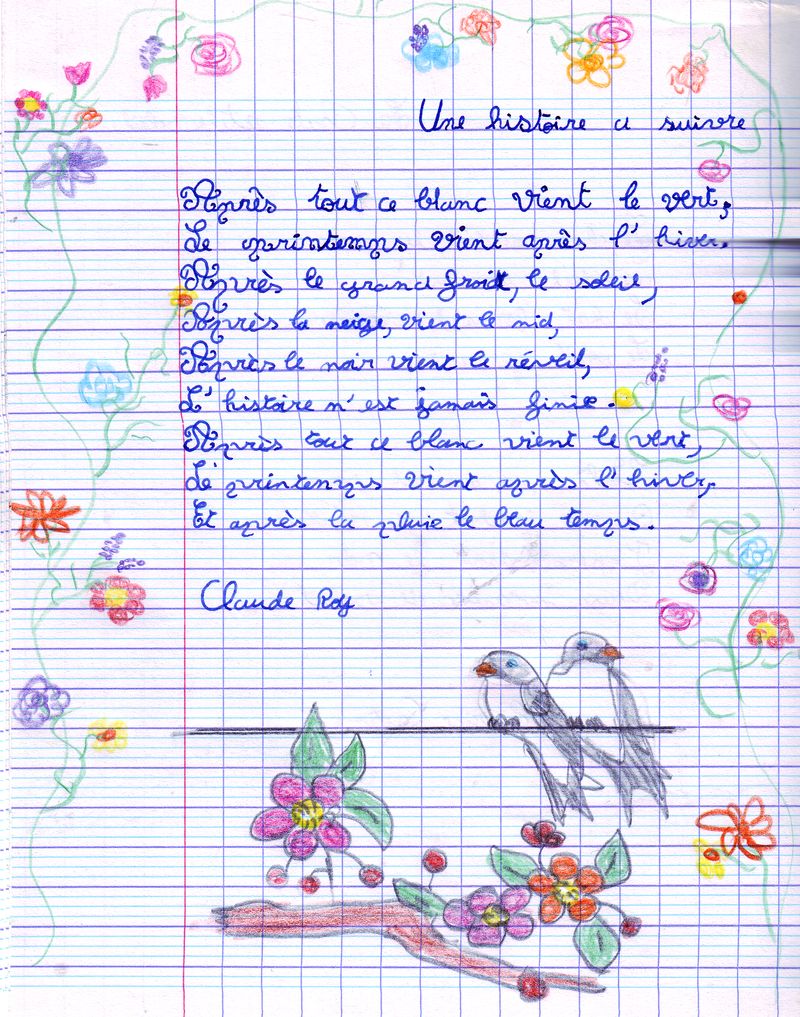 Une histoire a suivre
Après tout ce blanc vient le vert,
Le printemps vient après l'hiver.
Après le grand froid, le soleil,
Après la neige, vient le nid,
Après le noir vient le réveil,
L'histoire n'est jamais finie.
Après tout ce blanc vient le vert,
Le printemps vient après l'hiver,
Et après la pluie le beau temps.
Claude Roy